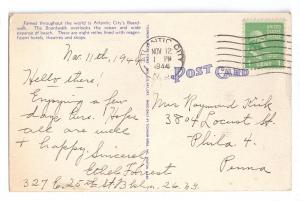 Famed throughout the world is Atlantic City's Board-
walk. The Boardwalk overlooks the ocean and wide
expanse of beach. These are eight miles lined with magni-
ficent hotels, theatres and shops.
ATLANTIC CITY
NOV 12
1 PM
1944
POST CARD
Nov. 11th, 1944
Hello there!
Enjoying a few
days here. Hope
all are well
+ happy.
Sincerely
Ethel Forrest
327 E. 25th St Bklyn. 26 NY.
Mrs Raymond Kirk
3804 Locust St.
Phila. 4
Penna